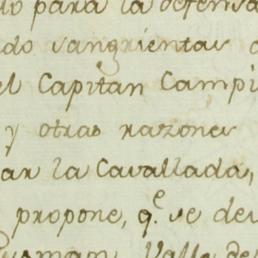 para la defensa
do sangrientas
el Capitan Campi
y otras razones
ar la Cavallada,
propone, q.e se de
Guzman, Valle de